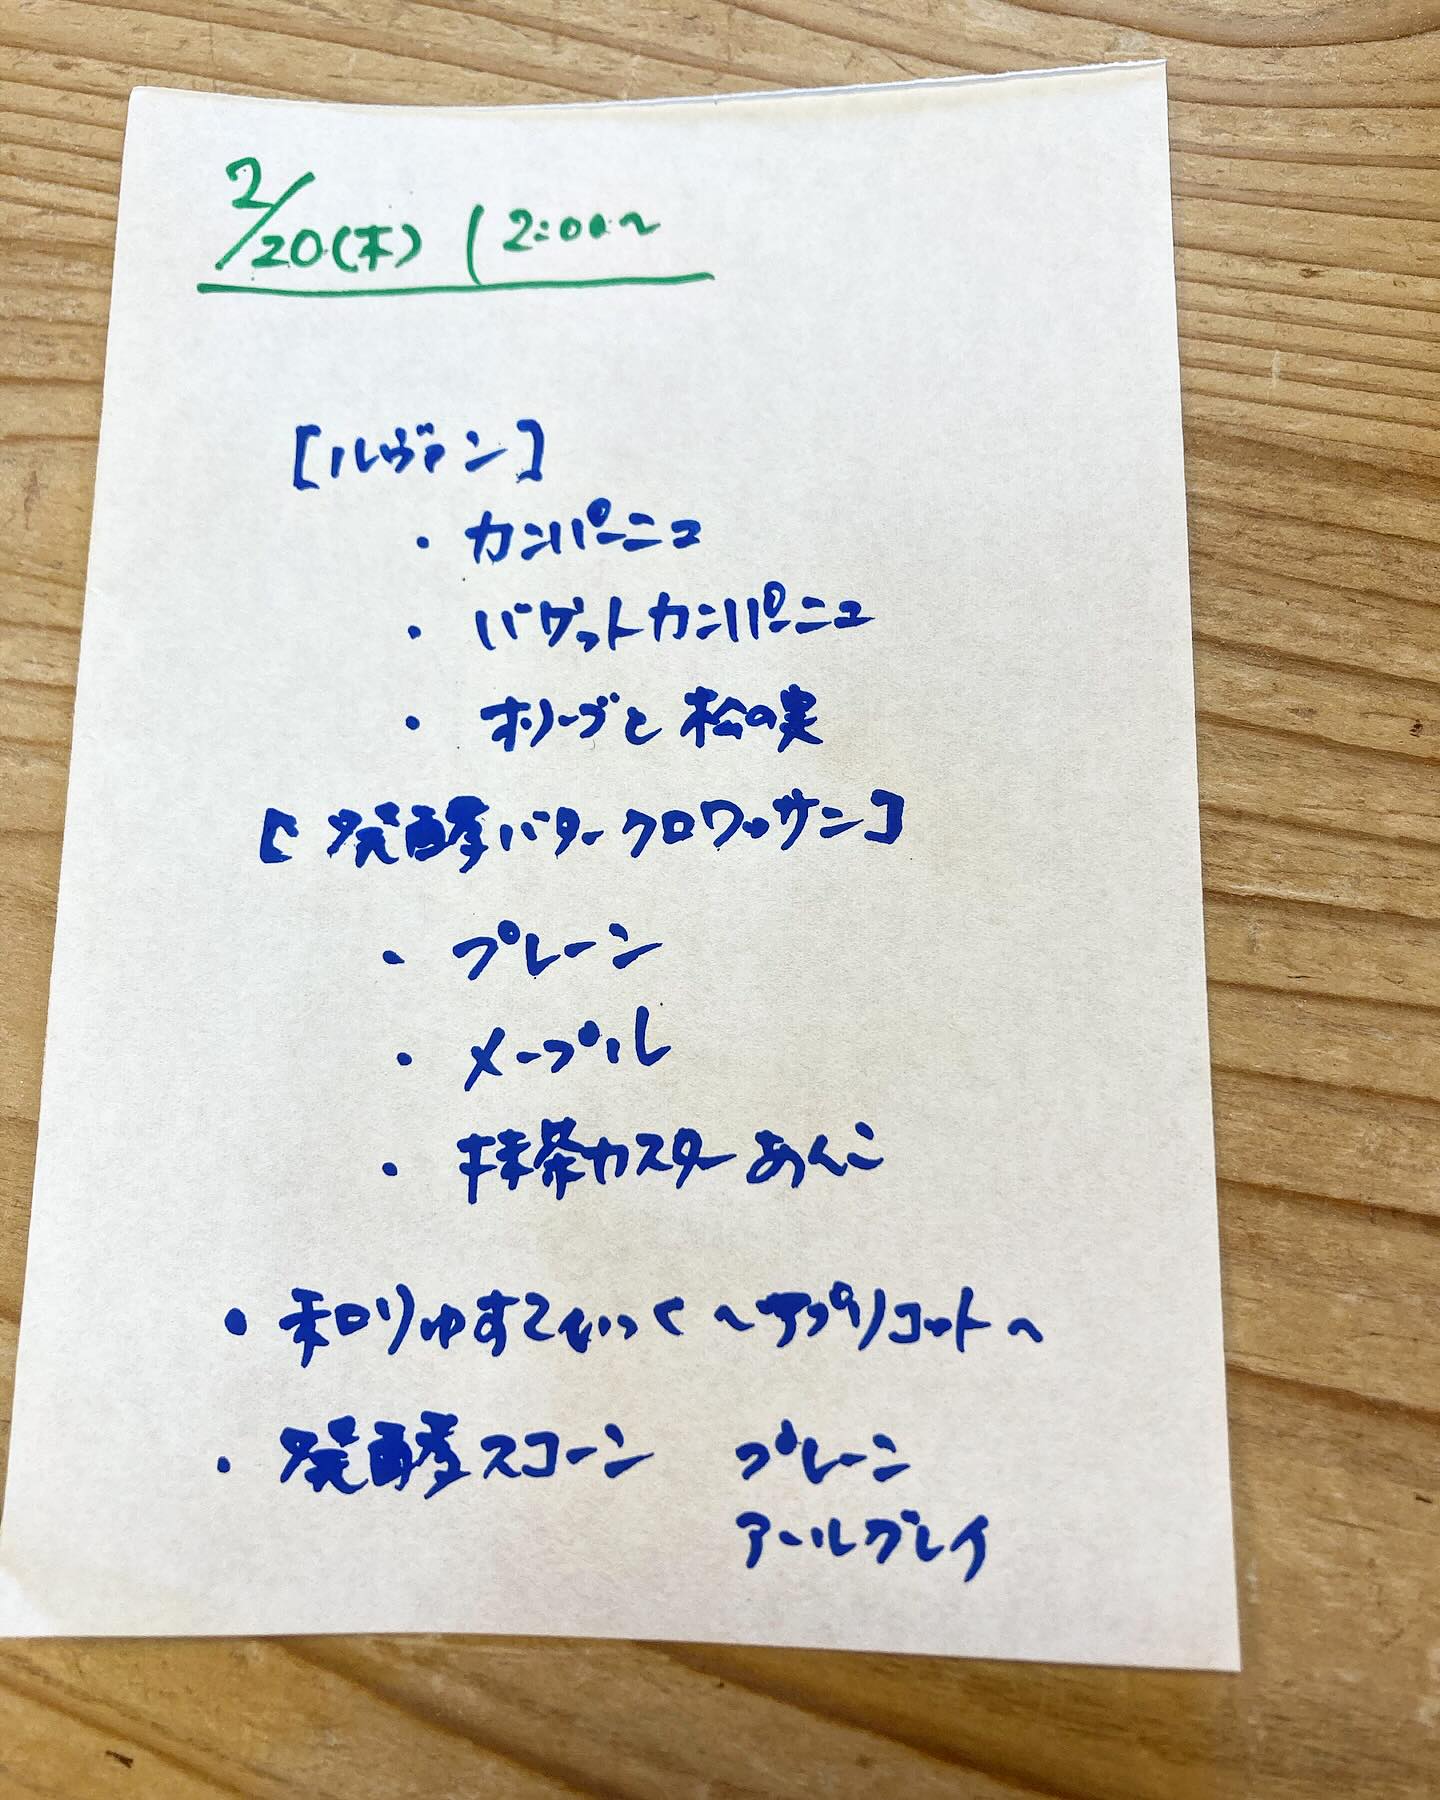 2/20(木) 12:00〜
[ルヴァン]
・カンパーニュ
・バゲットカンパーニュ
・オリーブと松の実
【発酵バタークロワッサン】
・プレーン
・メープル
・抹茶カスターあんこ
・和りゅすてぃっく 〜アプリコット〜
・発酵スコーン プレーン
アールグレイ